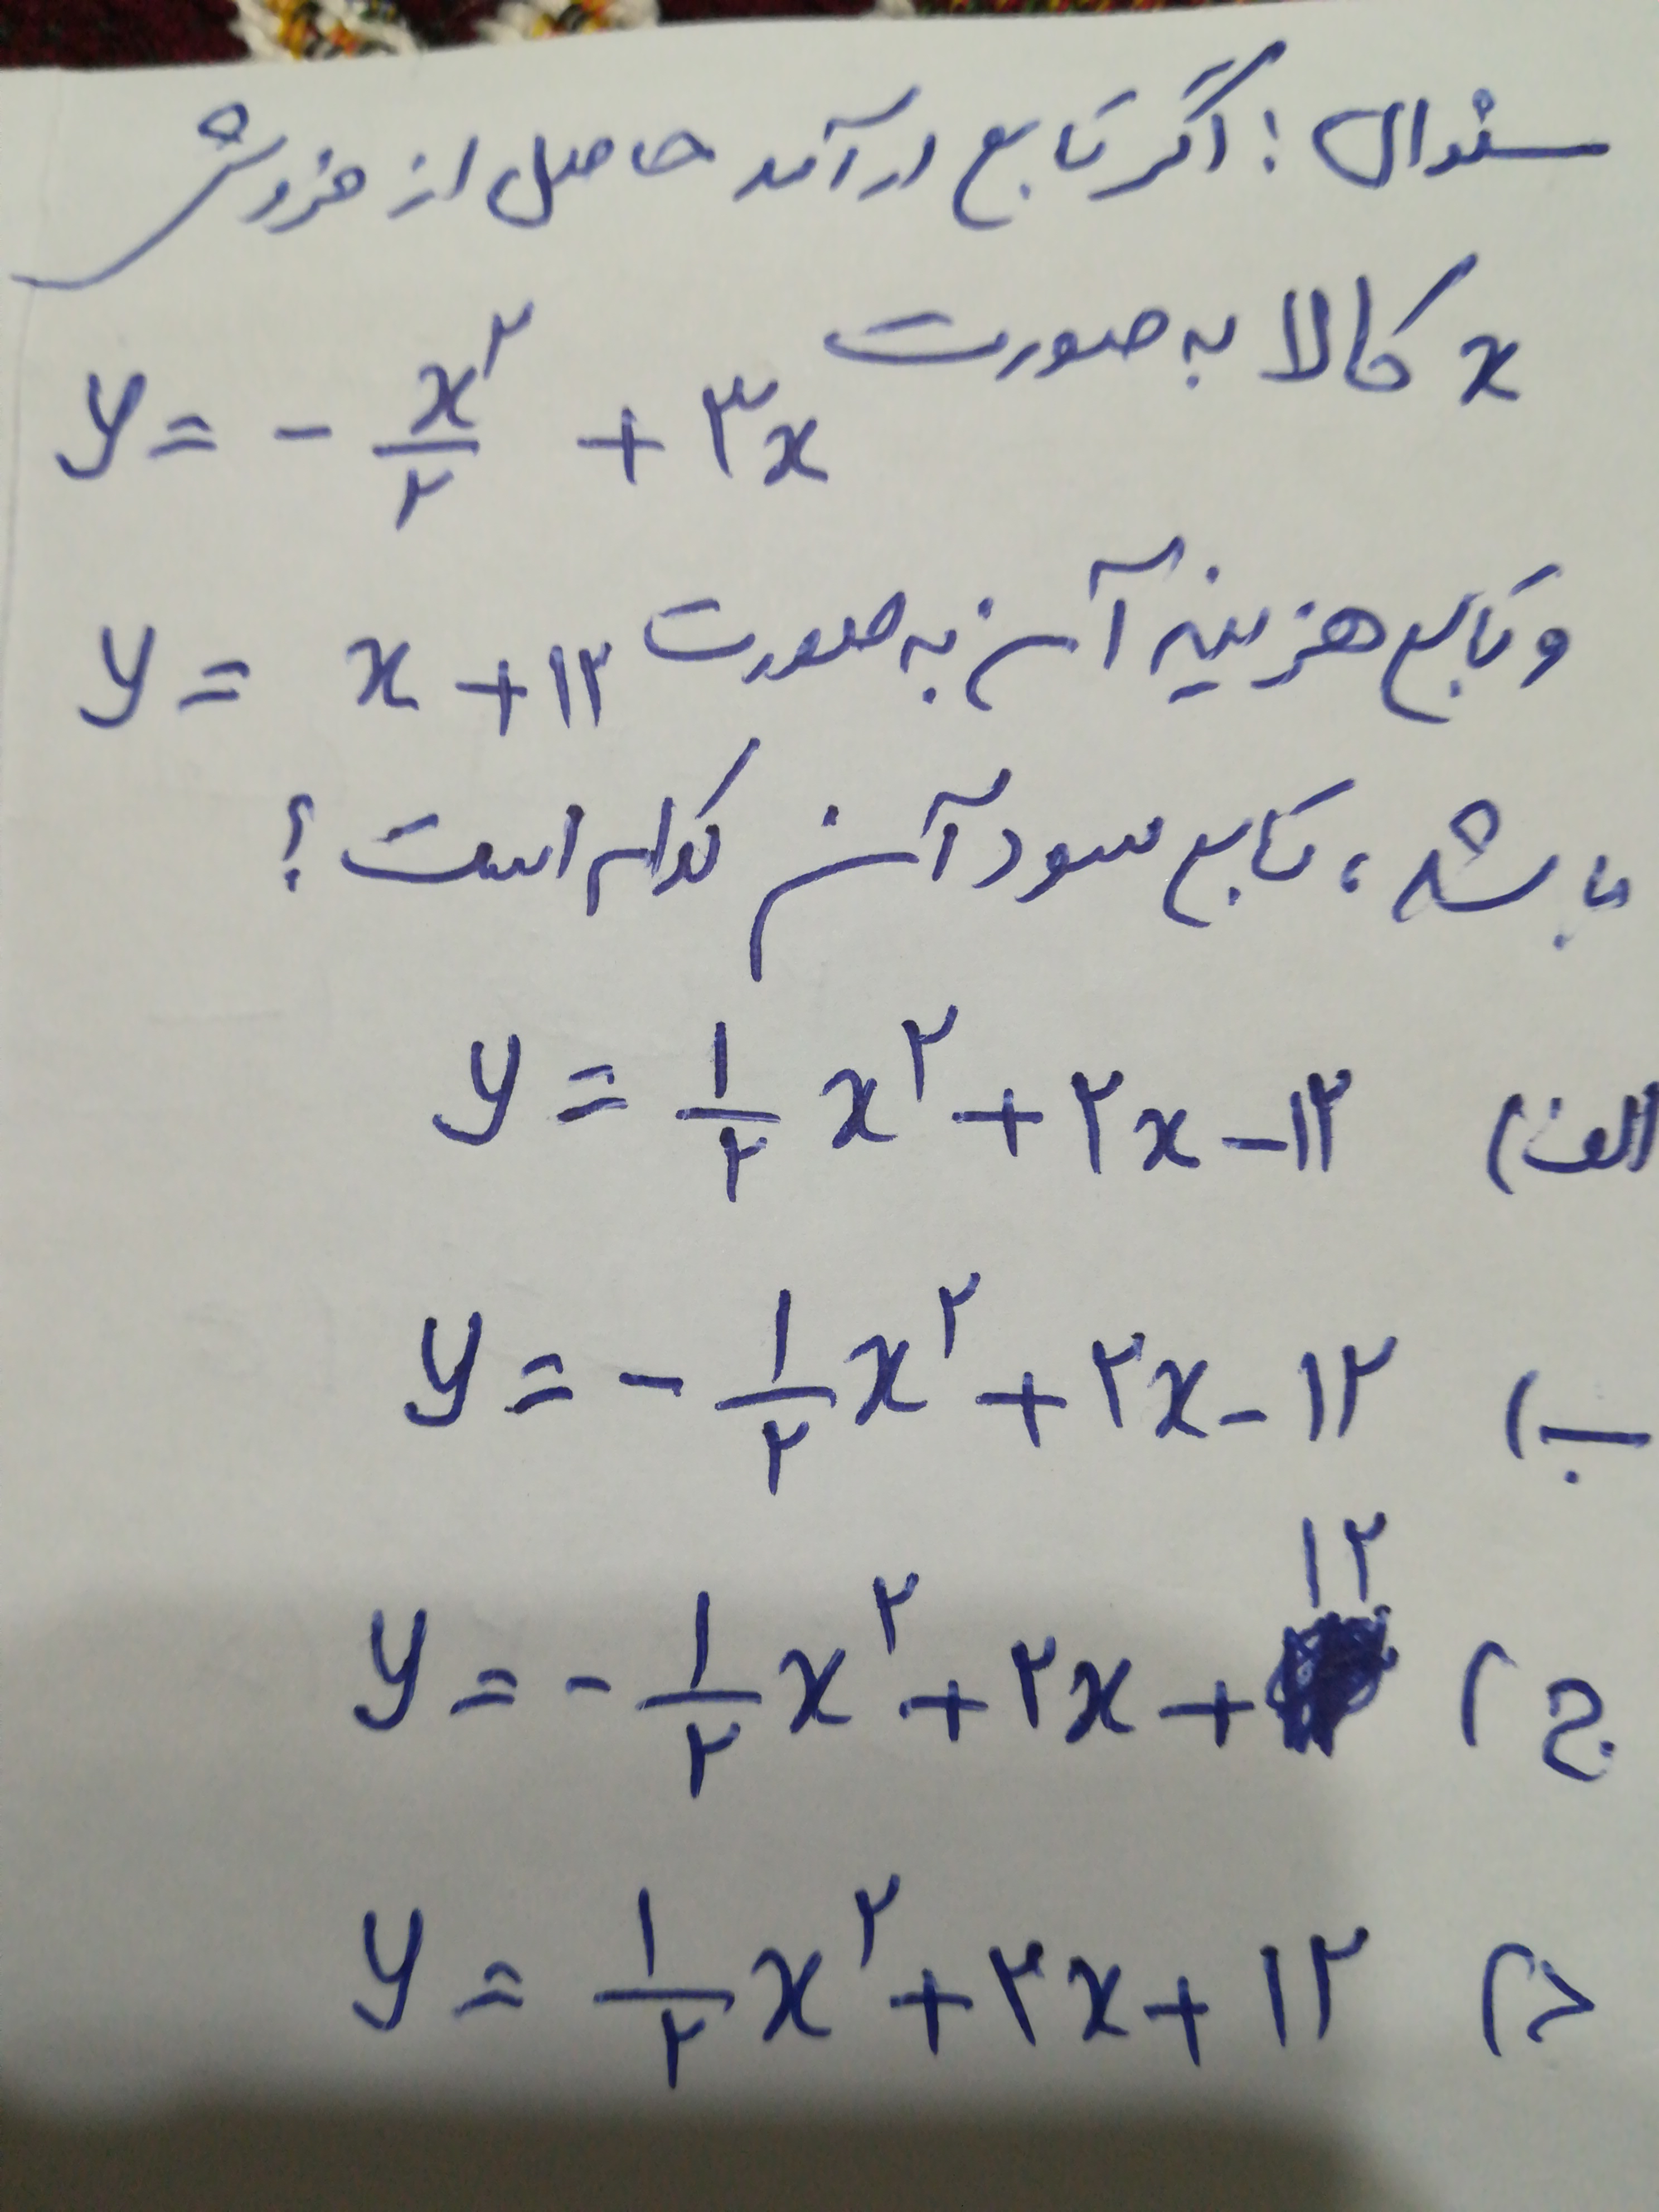 سئوال : اگر تابع درآمد حاصل از فروش
x کالا به صورت y = - x²/۲ + ۳x
و تابع هزینه آن به صورت y = x + ۱۲
باشد، تابع سود آن کدام است؟
الف) y = ۱/۲ x² + ۲x - ۱۲
ب) y = - ۱/۲ x² + ۲x - ۱۲
ج) y = - ۱/۲ x² + ۲x + ۱۲
د) y = ۱/۲ x² + ۲x + ۱۲